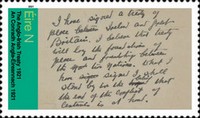 Éire N
The Anglo-Irish Treaty 1921
An Conradh Angla-Éireannach 1921
I have signed a treaty of
peace between Ireland and Great
Britain. I believe that treaty
will lay the foundation of
peace and friendship between
the two Nations. What I
have signed I shall
stand by in the
that the end of the conflict of
centuries is at hand.